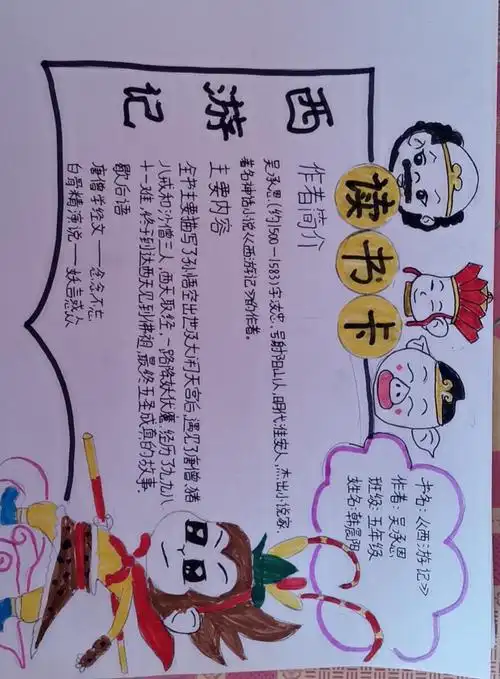 读书卡
卡名:《西游记》
作者:吴承恩
班级:五年级
姓名:韩晨阳
西游记
作者简介
吴承恩(约1500—1583)字汝忠,号射阳山人,明代淮安人,杰出小说家,
著名神话小说《西游记》的作者。
主要内容
全书主要描写了孙悟空出世及大闹天宫后,遇见了唐僧、猪
八戒和沙僧三人,西天取经,一路降妖伏魔,经历了九九八
十一难,终于到达西天见到佛祖,最终五圣成真的故事.
歇后语
唐僧学经文——念念不忘
白骨精演说——妖言惑众